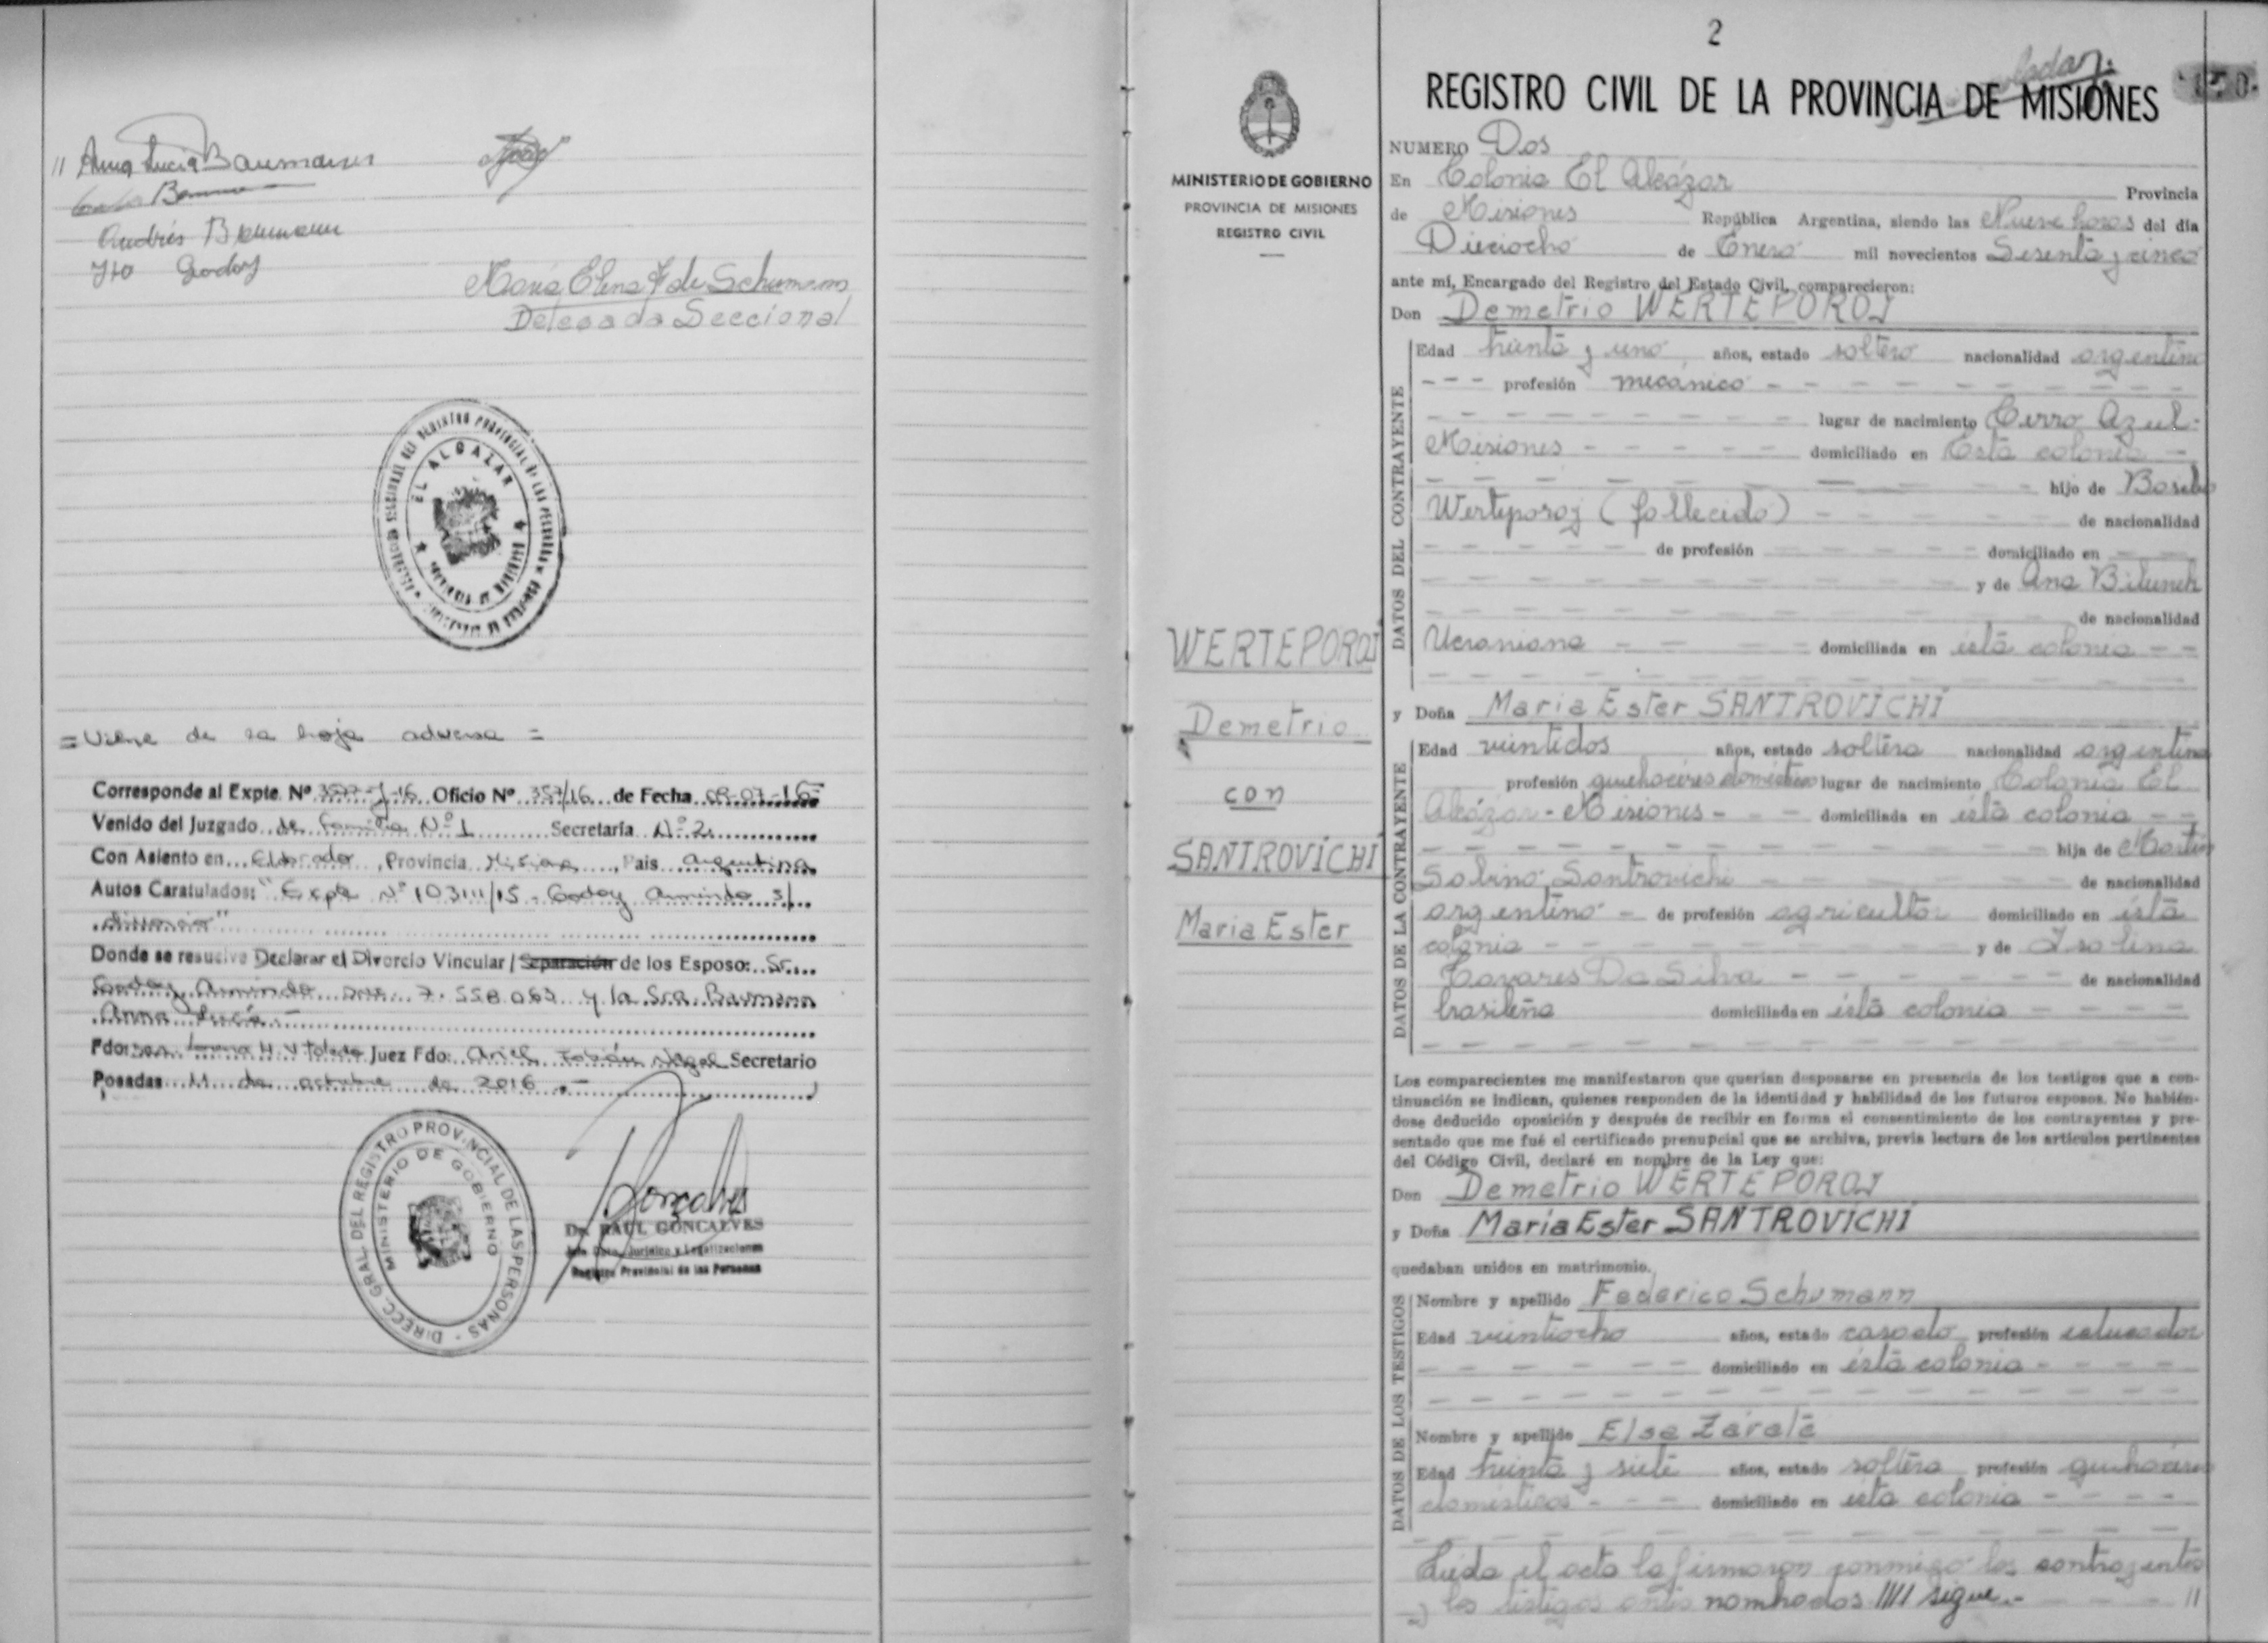 // Anna Lucia Baumann
Andrés Baumann
Godoy
María Elena F de Schumann
Delegada Seccional
EL ALCAZAR
= Viene de la hoja adversa =
Corresponde al Expte. Nº 3577-J-16 Oficio Nº 357/16 de Fecha 08-07-16
Venido del Juzgado de Familia Nº 1 Secretaría Nº 2
Con Asiento en Eldorado, Provincia Misiones, País Argentina
Autos Caratulados: "Expte Nº 103111/15 - Godoy Armindo s/
divorcio"
Donde se resuelve Declarar el Divorcio Vincular / Separación de los Esposo: Sr.
Godoy Armindo DNI 7.558.063 y la Sra. Baumann
Anna Lucía -
Fdo: Juez Fdo: Ariel Fabián Secretario
Posadas 11 de octubre de 2016 .-
DIRECC. GRAL. DEL REGISTRO PROVINCIAL DE LAS PERSONAS -
MINISTERIO DE GOBIERNO
Goncalves
Dr. RAUL GONCALVES
Jefe Dpto. Jurídico y Legalizaciones
Registro Provincial de las Personas
2
REGISTRO CIVIL DE LA PROVINCIA DE MISIONES
MINISTERIO DE GOBIERNO
PROVINCIA DE MISIONES
REGISTRO CIVIL
WERTEPOROJ
Demetrio
con
SANTROVICHI
Maria Ester
NUMERO Dos
En Colonia El Alcázar Provincia
de Misiones República Argentina, siendo las Nueve horas del día
Dieciocho de Enero mil novecientos Sesenta y cinco
ante mí, Encargado del Registro del Estado Civil, comparecieron:
Don Demetrio WERTEPOROJ
DATOS DEL CONTRAYENTE
Edad treinta y uno años, estado soltero nacionalidad argentino
--- profesión mecánico - - - - - - - -
- - - - - - - - - lugar de nacimiento Cerro Azul -
Misiones - - - - - - domiciliado en Esta colonia -
- - - - - - - - - hijo de Basilio
Werteporoj (fallecido) - - - - - - de nacionalidad
- - - - - - de profesión - - - - - domiciliado en - -
- - - - - - - - - - y de Ana Bilunek
- - - - - - - - - - de nacionalidad
Ucraniana - - - - domiciliada en ésta colonia - -
y Doña Maria Ester SANTROVICHI
DATOS DE LA CONTRAYENTE
Edad veintidos años, estado soltera nacionalidad argentina
profesión quehaceres domésticos lugar de nacimiento Colonia El
Alcázar - Misiones - - - domiciliada en ésta colonia - -
- - - - - - - - - - hija de Martin
Sabino Santrovichi - - - - - - de nacionalidad
argentino - de profesión agricultor domiciliado en ésta
colonia - - - - - - - - - y de Isolina
Tavares Da Silva - - - - - - de nacionalidad
brasileña domiciliada en ésta colonia - - - -
Los comparecientes me manifestaron que querían desposarse en presencia de los testigos que a con-
tinuación se indican, quienes responden de la identidad y habilidad de los futuros esposos. No habién-
dose deducido oposición y después de recibir en forma el consentimiento de los contrayentes y pre-
sentado que me fué el certificado prenupcial que se archiva, previa lectura de los artículos pertinentes
del Código Civil, declaré en nombre de la Ley que:
Don Demetrio WERTEPOROJ
y Doña María Ester SANTROVICHI
quedaban unidos en matrimonio.
DATOS DE LOS TESTIGOS
Nombre y apellido Federico Schumann
Edad veintiocho años, estado casado profesión educador
- - - - - - domiciliado en ésta colonia - - - -
Nombre y apellido Elsa Zárate
Edad treinta y siete años, estado soltera profesión quehaceres
domésticos - - - domiciliado en esta colonia - - - -
Leída el acta la firmaron conmigo los contrayentes
y los testigos antes nombrados //// sigue.- - - - - //